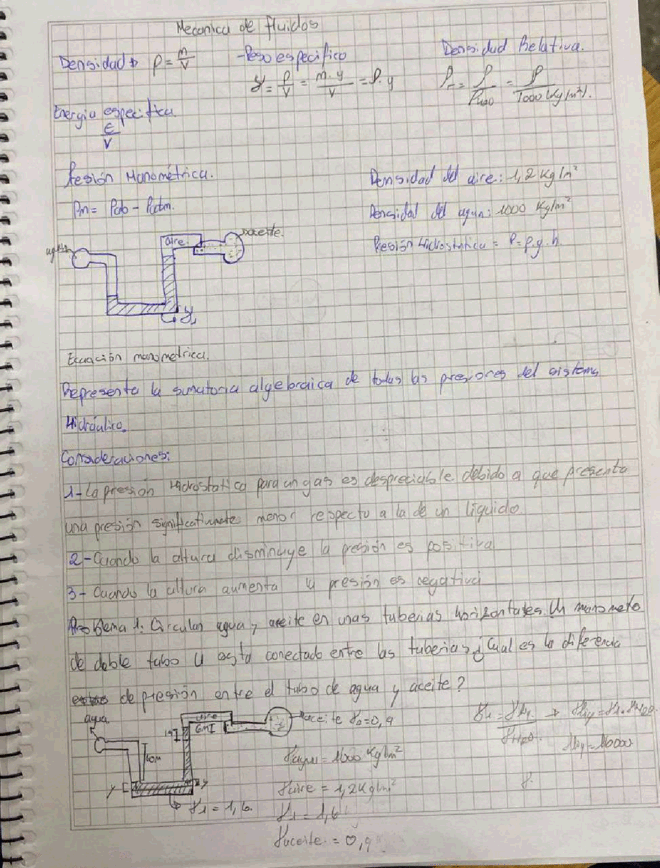 Mecanica de fluidos
Densidad → ρ = m/V
- Peso especifico
γ = ρ/V = m·g/V = ρ·g
Densidad Relativa.
ρr = ρ/ρH2O = ρ/1000 (Kg/m³).
Energia especifica
E/V
Presión Manométrica.
Pm = Pab - Patm.
Densidad del aire: 1,2 Kg/m³
Densidad del agua: 1000 Kg/m³
Presión Hidrostatica = P = ρ.g.h
agua
aire
aceite.
Ecuación manometrica.
Representa la sumatoria algebraica de todas las presiones del sistema
Hidráulico.
Consideraciones:
1- La presión Hidrostatica para un gas es despreciable debido a que presenta
una presión significativamente menor respecto a la de un liquido
2- Cuando la altura disminuye la presión es positiva
3- Cuando la altura aumenta la presión es negativa
Problema 1: Circulan agua y aceite en unas tuberias horizontales. Un manometro
de doble tubo U esta conectado entre las tuberias ¿Cual es la diferencia
de presión entre el tubo de agua y aceite?
agua
aire
aceite γ=0,9
10m
γ1 = 1,6
γagua = 1000 Kg/m³
γaire = 1,2 Kg/m³
γ1 = 1,6
γaceite = 0,9